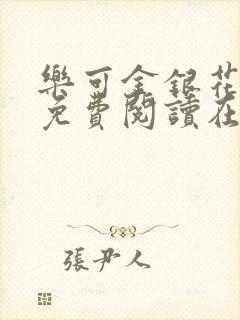 樂可金銀花
免費閱讀在
張尹人